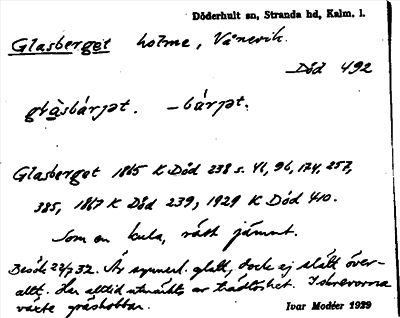 Döderhult sn, Stranda hd, Kalm. l.
Glasberget holme, Vånevik.
Död 492
glàsbárjət. –bárjət.
Glasberget 1865 K Död 238 s. 46, 96, 174, 257,
385, 1867 K Död 239, 1929 K Död 410.
Som en kula, rätt jämnt.
Besök 22/7 32. Är synnerl. glatt, dock ej slätt över-
allt. Har alltid utmärkts av trädlöshet. I skrevorna
växte gräshobbar.
Ivar Modéer 1929